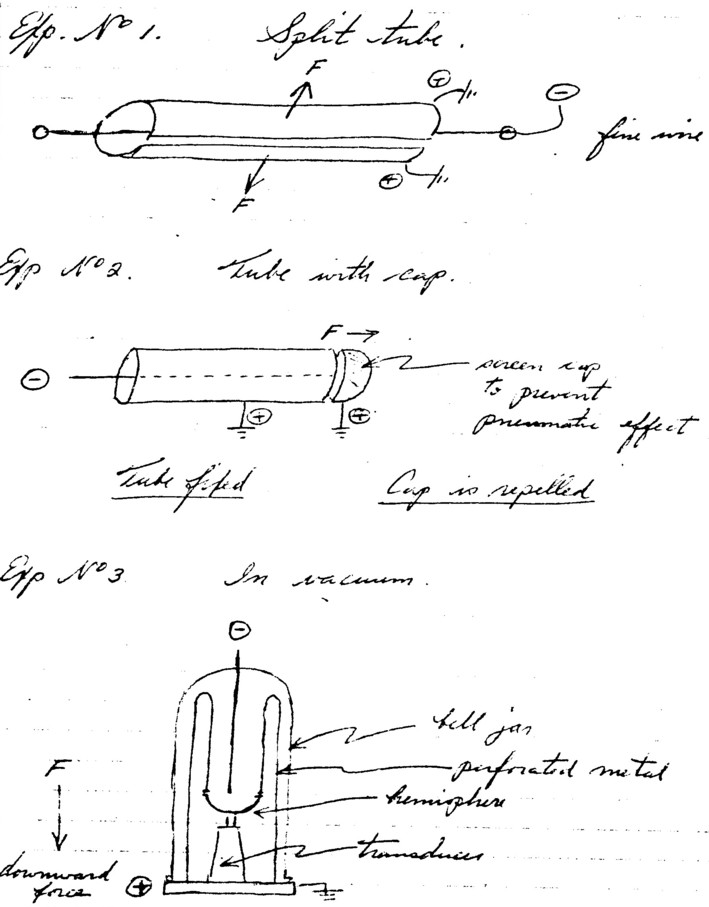 Exp. Nº 1. Split tube.
F
⊕
⊖
fine wire
⊕
F
Exp Nº 2. Tube with cap.
F →
⊖
screen cap
to prevent
pneumatic effect
⊕ ⊕
Tube fixed Cap is repelled
Exp Nº 3 In vacuum.
⊖
bell jar
F
perforated metal
hemisphere
transducer
downward
force
⊕